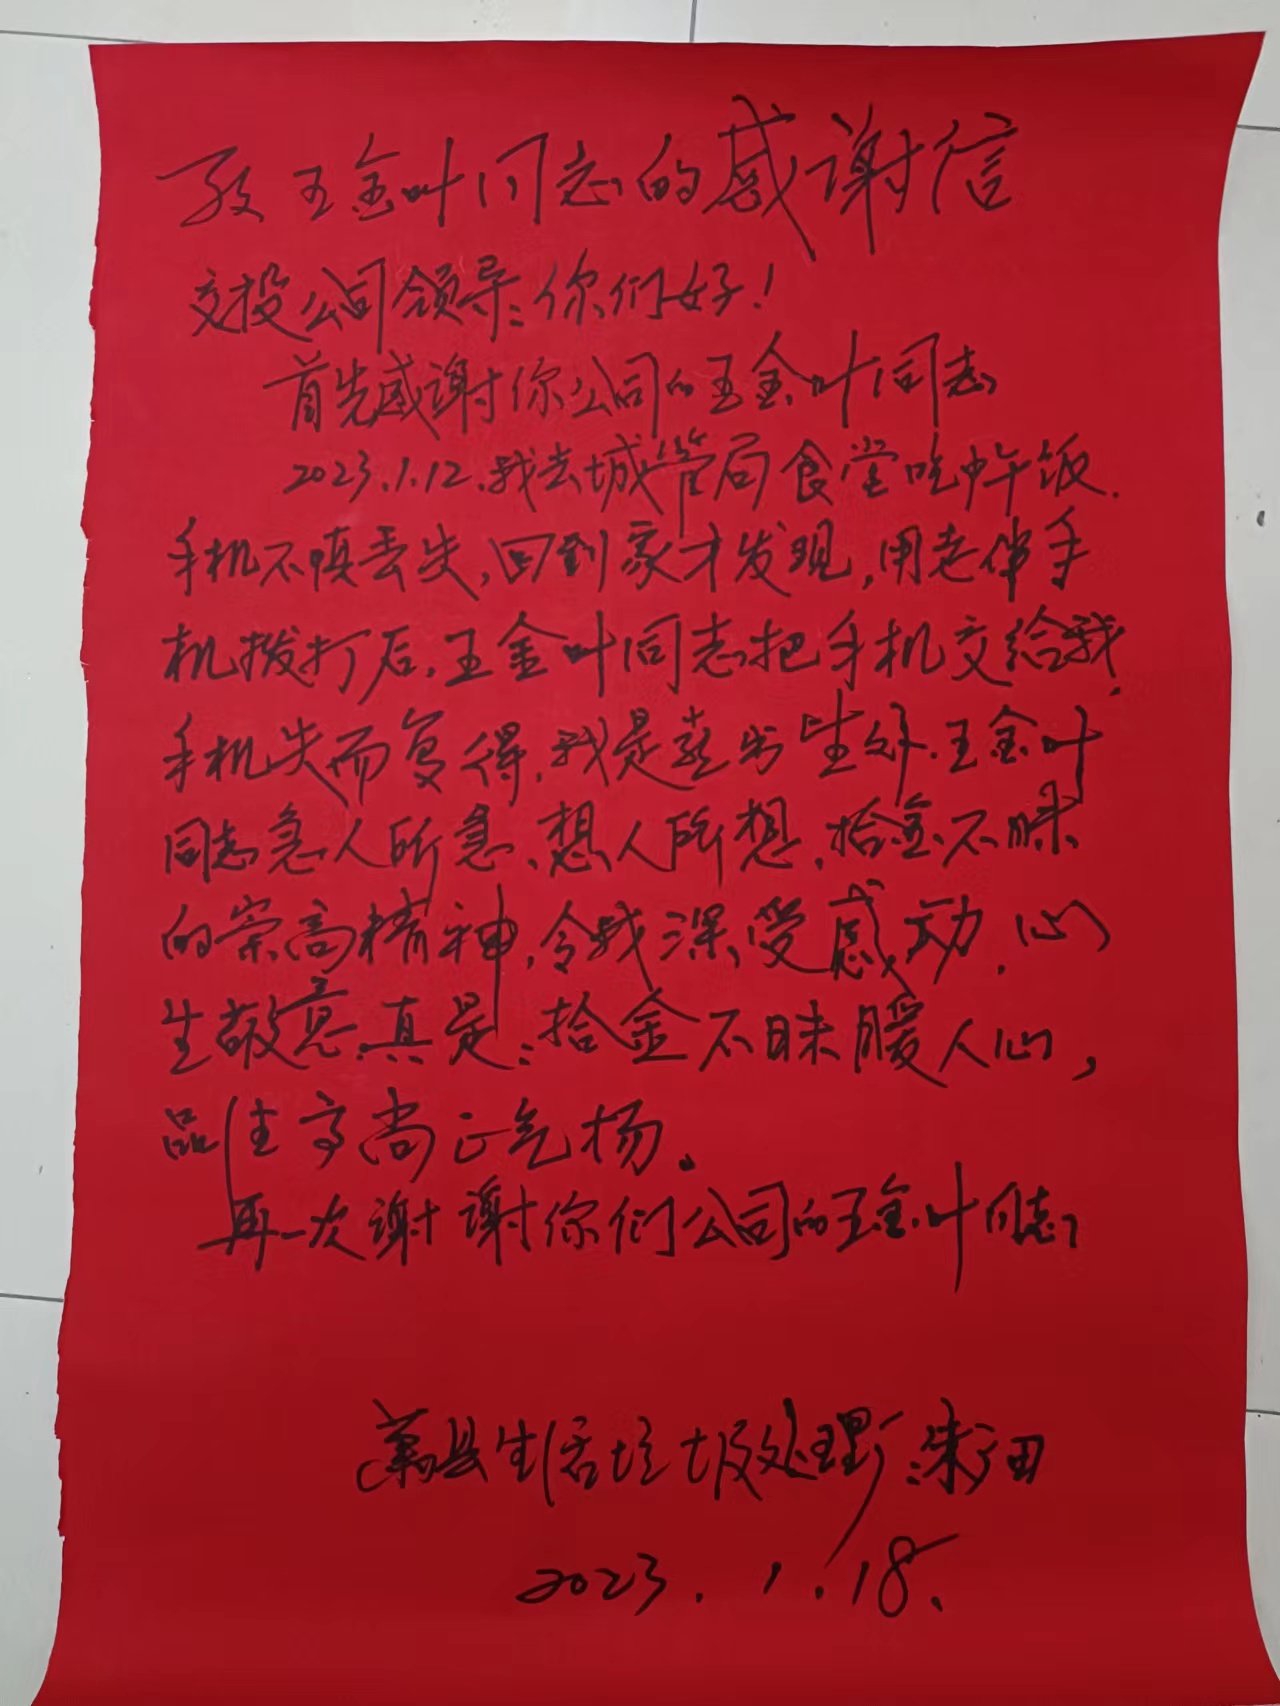 致王金叶同志的感谢信
交投公司领导:你们好!
首先感谢你公司的王金叶同志
2023.1.12.我去城管局食堂吃中午饭.
手机不慎丢失,回到家才发现,用老伴手
机拨打后.王金叶同志把手机交给我.
手机失而复得.我是喜出望外.王金叶
同志急人所急、想人所想.拾金不昧
的崇高精神,令我深受感动.心
生敬意.真是:拾金不昧暖人心,
品性高尚正气扬。
再一次谢谢你们公司的王金叶同志
萧县生活垃圾处理厂:朱
2023.1.18.